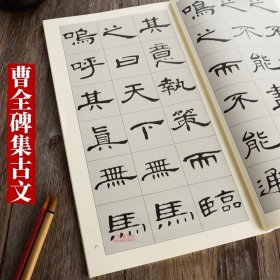 之而不能通
其意執策而臨
之曰天下無馬
嗚呼其眞無馬
曹全碑集古文